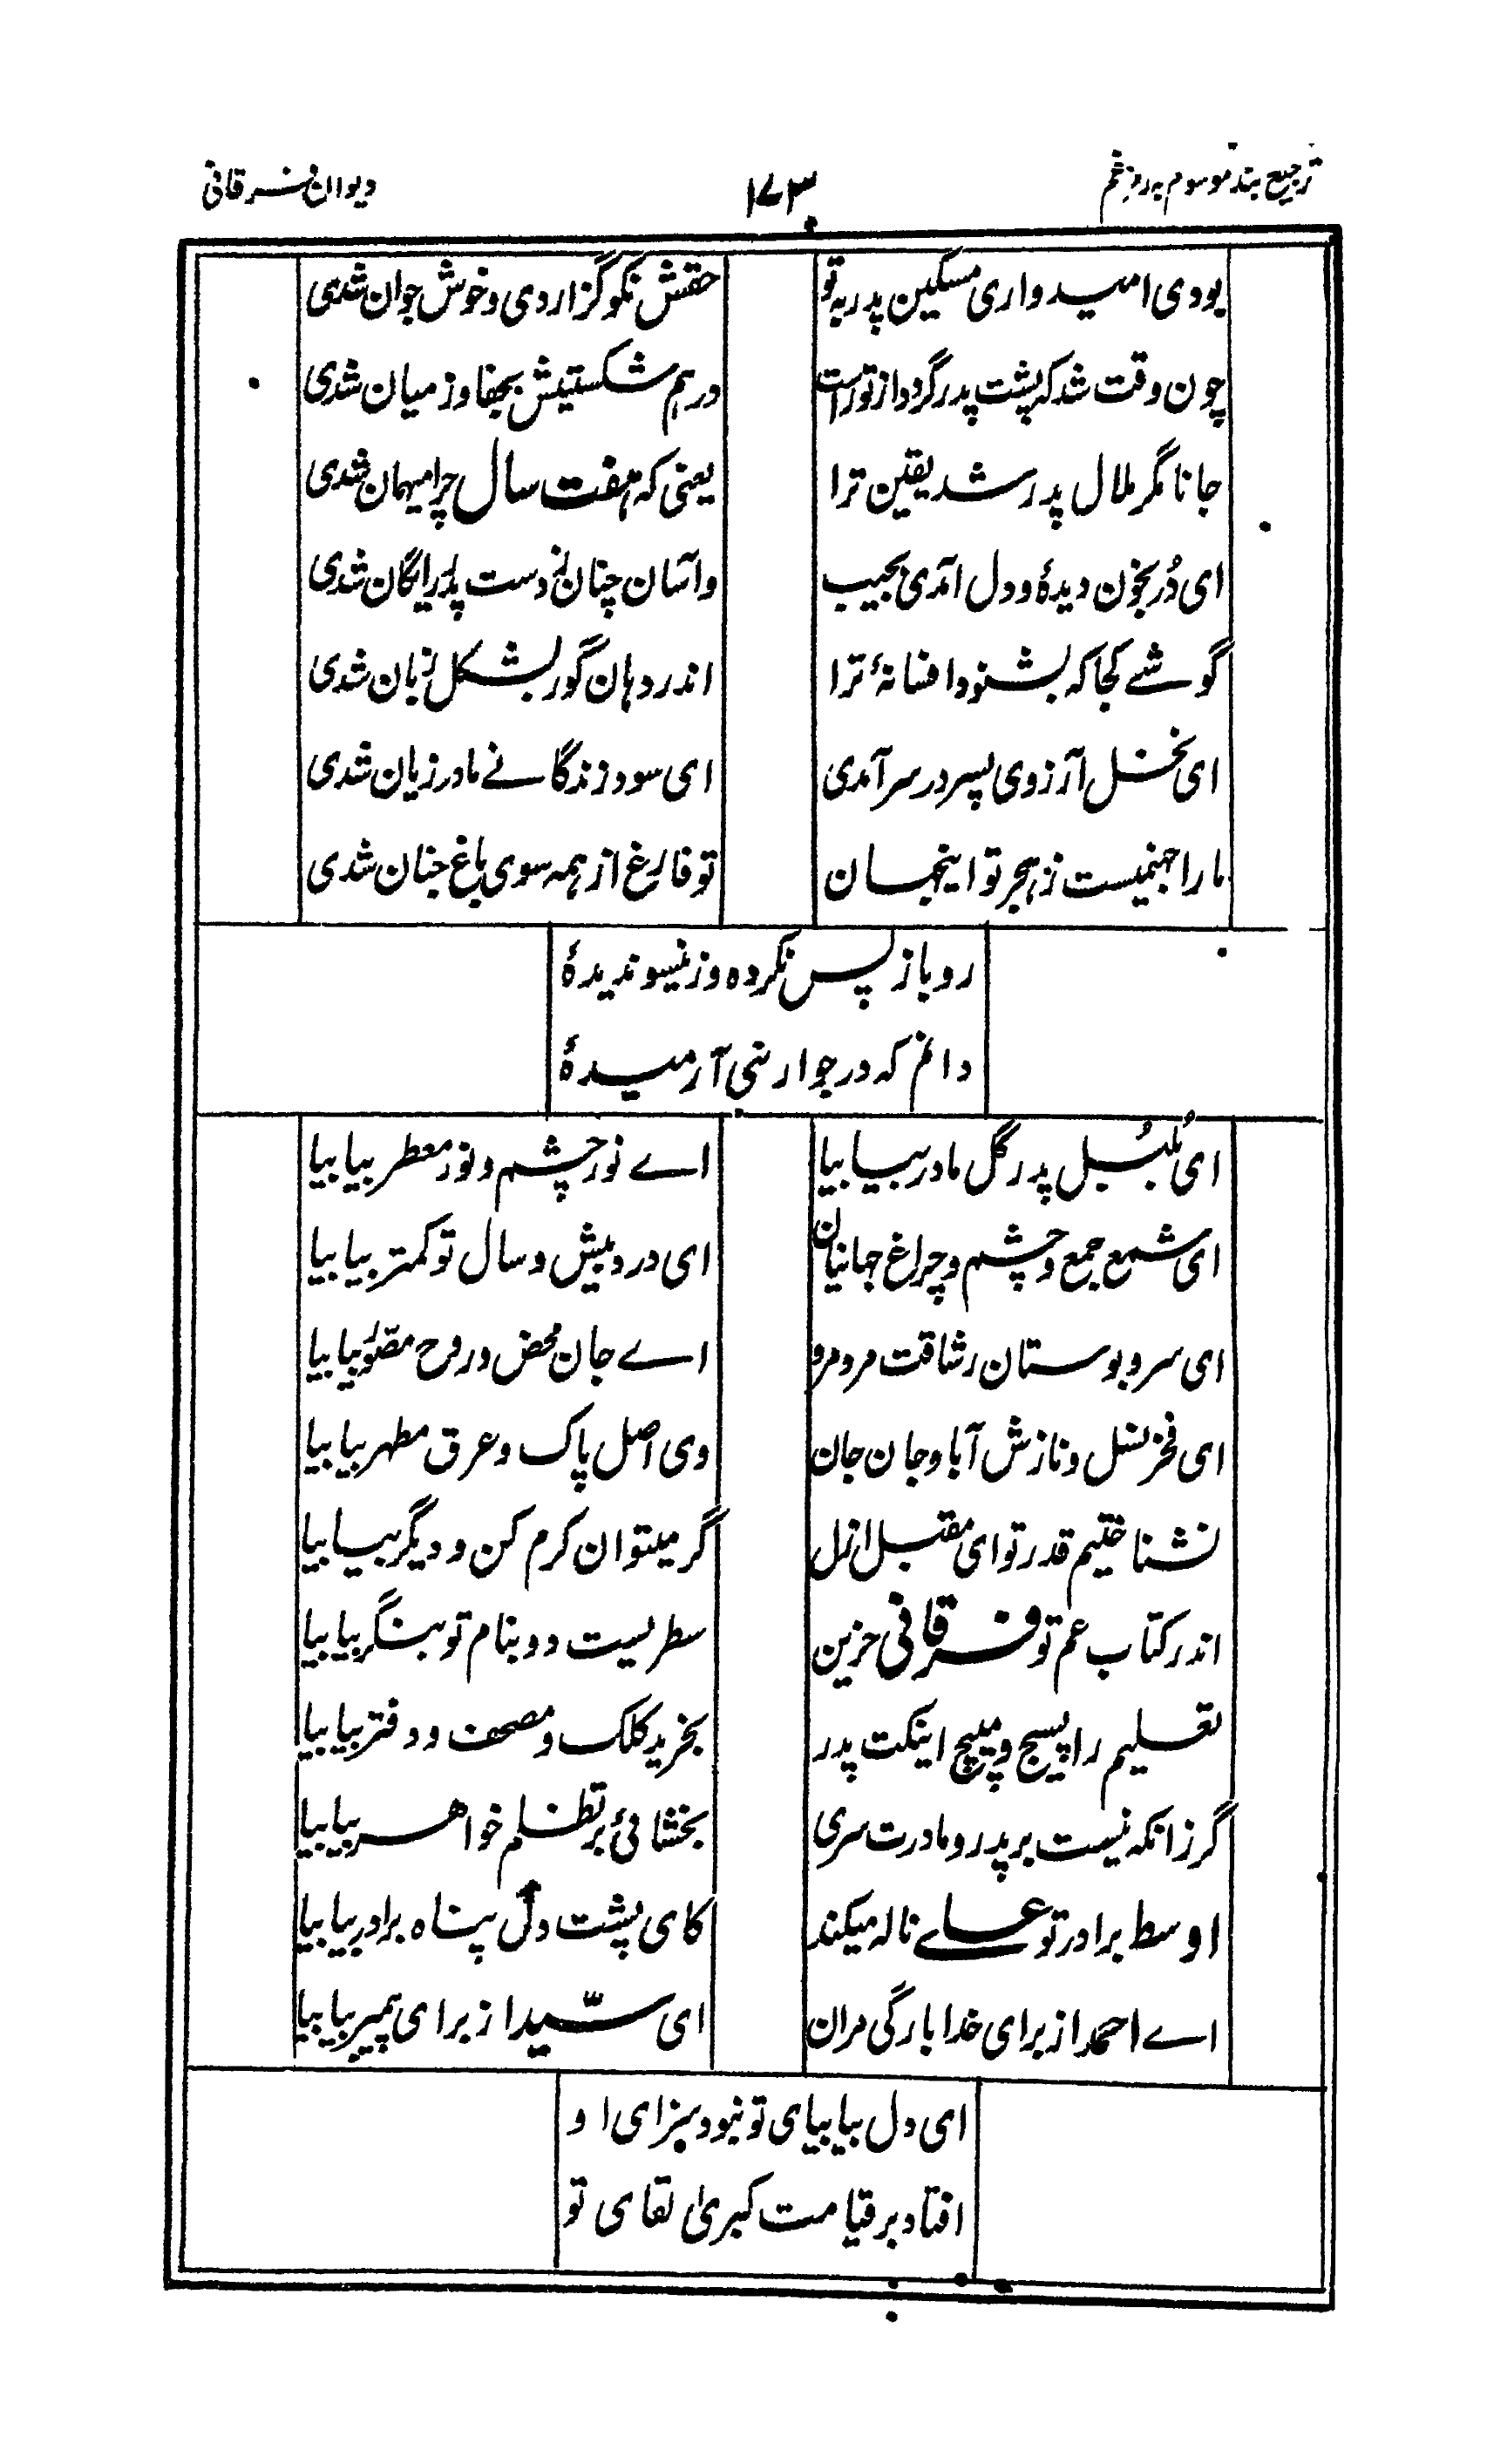 ترجیع بند موسوم به روز غم ۱۷۳ دیوان فرقانی
بودی امیدواری مسکین پدر به تو حقش نکو گزاردی و خوش جوان شدی
چون وقت شد که پشت پدر گردد از تو راست درہم شکستیش بجفا وز میان شدی
جانا مگر ملال پدر شد یقین ترا یعنی که ہفت سال چرا میہمان شدی
ای دُر بخون دیدۂ و دل آمدی بجیب وآسان چنان ز دست پدر رایگان شدی
گوشے کجا که بشنود افسانۂ ترا اندر دہان گور بشکل زبان شدی
ای نخل آرزوی پسر در سر آمدی ای سود زندگانے مادر زیان شدی
ما را جہنمیست ز ہجر تو اینجہان تو فارغ از ہمه سوی باغ جنان شدی
رو باز پس نکرده وزینسو ندیدۂ
دانم که در جوار نبی آرمیدۂ
ای بُلبُل پدر گل مادر بیا بیا اے نور چشم و نور معطر بیا بیا
ای شمع جمع و چشم و چراغ جہانیان ای درد بیش و سال تو کمتر بیا بیا
ای سرو بوستان رشاقت مرو مرو اے جان محض و روح مصّور بیا بیا
ای فخر نسل و نازش آبا و جان جان وی اصل پاک و عرق مطہر بیا بیا
نشناختیم قدر تو ای مقبل ازل گر میتوان کرم کن و دیگر بیا بیا
اندر کتاب عم تو فرقانی حزین سطریست دو بنام تو بنگر بیا بیا
تعلیم را پسیج و مپیچ اینکت پدر بخرید کلک و مصحف و دفتر بیا بیا
گر زانکه نیست بر پدر و مادرت سری بخشائی بر تظلم خواہر بیا بیا
اوسط برادر تو علے ناله میکند کای پشت دل پناه برادر بیا بیا
اے احمد از برای خدا بارگی مران ای سّید از برای پیمبر بیا بیا
ای دل بیا بیای تو نبود سزای او
افتاد بر قیامت کبریٰ لقای تو